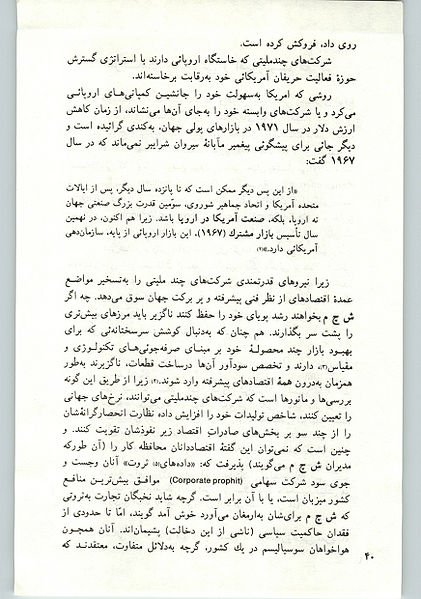 روی داد، فروکش کرده است.
شرکت‌های چندملیتی که خاستگاه اروپائی دارند با استراتژی گسترش
حوزهٔ فعالیت حریفان آمریکائی خود به‌رقابت برخاسته‌اند.
روشی که امریکا به‌سهولت خود را جانشین کمپانی‌های اروپائی
می‌کرد و یا شرکت‌های وابسته خود را به‌جای آن‌ها می‌نشاند، از زمان کاهش
ارزش دلار در سال ۱۹۷۱ در بازارهای پولی جهان، به‌کندی گرائیده است و
دیگر جائی برای پیشگوئی پیغمبر مآبانهٔ سیروان شرایبر نمی‌ماند که در سال
۱۹۶۷ گفت:
«از این پس دیگر ممکن است که تا پانزده سال دیگر، پس از ایالات
متحده آمریکا و اتحاد جماهیر شوروی، سوّمین قدرت بزرگ صنعتی جهان
نه اروپا، بلکه، صنعت آمریکا در اروپا باشد. زیرا هم اکنون، در نهمین
سال تأسیس بازار مشترك (۱۹۶۷)، این بازار اروپائی از پایه، سازمان‌دهی
آمریکائی دارد.»(۲)
زیرا نیروهای قدرتمندی شرکت‌های چند ملیتی را به‌تسخیر مواضع
عمدهٔ اقتصادهای از نظر فنی پیشرفته و پر برکت جهان سوق می‌دهد. چه اگر
ش چ م بخواهند رشد پویای خود را حفظ کنند ناگزیر باید مرزهای بیش‌تری
را پشت سر بگذارند. هم چنان که به‌دنبال کوشش سرسختانه‌ئی که برای
بهبود بازار چند محصولهٔ خود بر مبنـای صرفه‌جوئی‌هـای تکنولـوژی و
مقیاس(۳)، دارند و تخصص سودآور آن‌ها درساخت قطعات، ناگزیرند به‌طور
همزمان به‌درون همهٔ اقتصادهای پیشرفته وارد شوند.(۴) زیرا از طریق این گونه
بررسی‌ها و مانورها است که شرکت‌های چندملیتی می‌توانند، نرخ‌های جهانی
را تعیین کنند، شاخص تولیدات خود را افزایش داده نظارت انحصارگرانهٔشان
را از چند سو بر بخش‌های صادراتِ اقتصاد زیر نفوذشان تقویت کنند. و
چنین است که نمی‌توان این گفتهٔ اقتصاددانان محافظه کار را (آن طورکه
مدیران ش چ م می‌گویند) پذیرفت که: «داده‌های(۵) ثروت» آنان وجست و
جوی سود شرکت سهامی (Corporate prophit) موافـق بیش‌تریـن منافـع
کشور میزبان است، یا با آن برابر است. گرچه شاید نخبگان تجارت به‌ثروتی
که ش چ م برای‌شان به‌ارمغان می‌آورد خوش آمد گویند، امّا تا حدودی از
فقدان حاکمیت سیاسی (ناشی از این دخالت) پشیمان‌اند. آنان همچـون
هواخواهان سوسیالیسم در یك کشور، گرچه به‌دلائل متفاوت، معتقدنـد که
۴۰